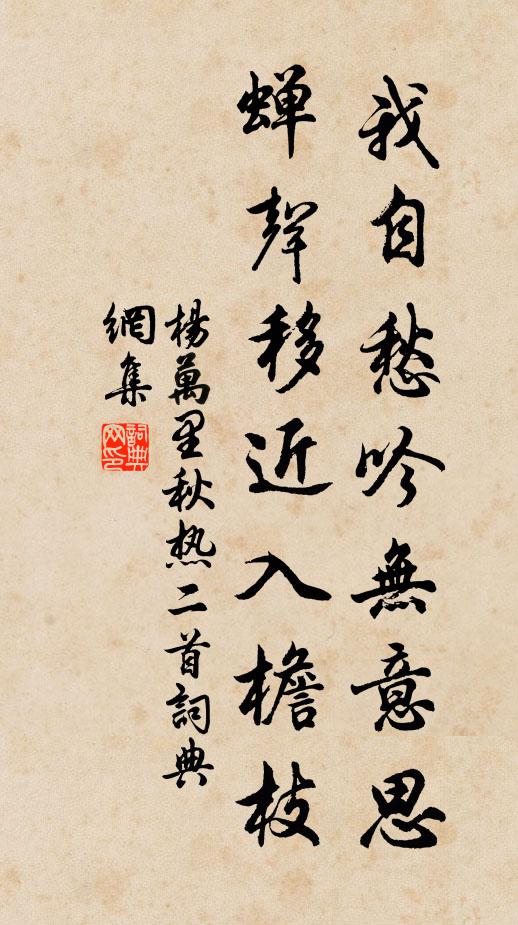 我自愁吟無意思
蟬聲移近入檐枝
楊萬里秋热二首詞典
網集
詞典网印